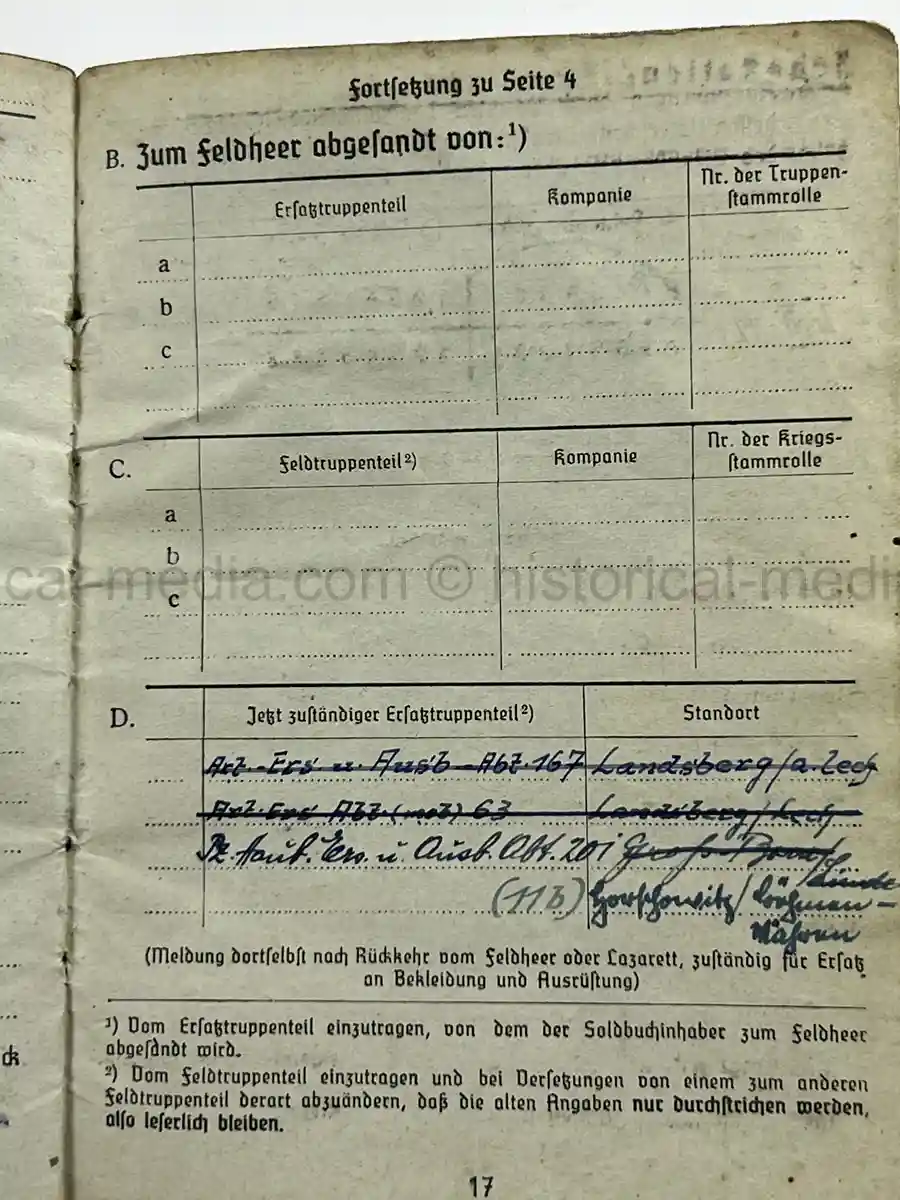 Fortsetzung zu Seite 4
B. Zum Feldheer abgesandt von:¹)
Ersatztruppenteil Kompanie Nr. der Truppen-
stammrolle
a
b
c
C. Feldtruppenteil²) Kompanie Nr. der Kriegs-
stammrolle
a
b
c
cal-media.com © historical-medi
D. Jetzt zuständiger Ersatztruppenteil²) Standort
Art.-Ers u. Ausb-Abt. 167 Landsberg/a. Lech
Art. Ers Abt. (mot) 63 Landsberg/Lech
Pz. Haub. Ers. u. Ausb. Abt. 201 Groß
(11b) /Böhmen-
Mähren
(Meldung dortselbst nach Rückkehr vom Feldheer oder Lazarett, zuständig für Ersatz
an Bekleidung und Ausrüstung)
¹) Vom Ersatztruppenteil einzutragen, von dem der Soldbuchinhaber zum Feldheer
abgesandt wird.
²) Vom Feldtruppenteil einzutragen und bei Versetzungen von einem zum anderen
Feldtruppenteil derart abzuändern, daß die alten Angaben nur durchstrichen werden,
also leserlich bleiben.
17